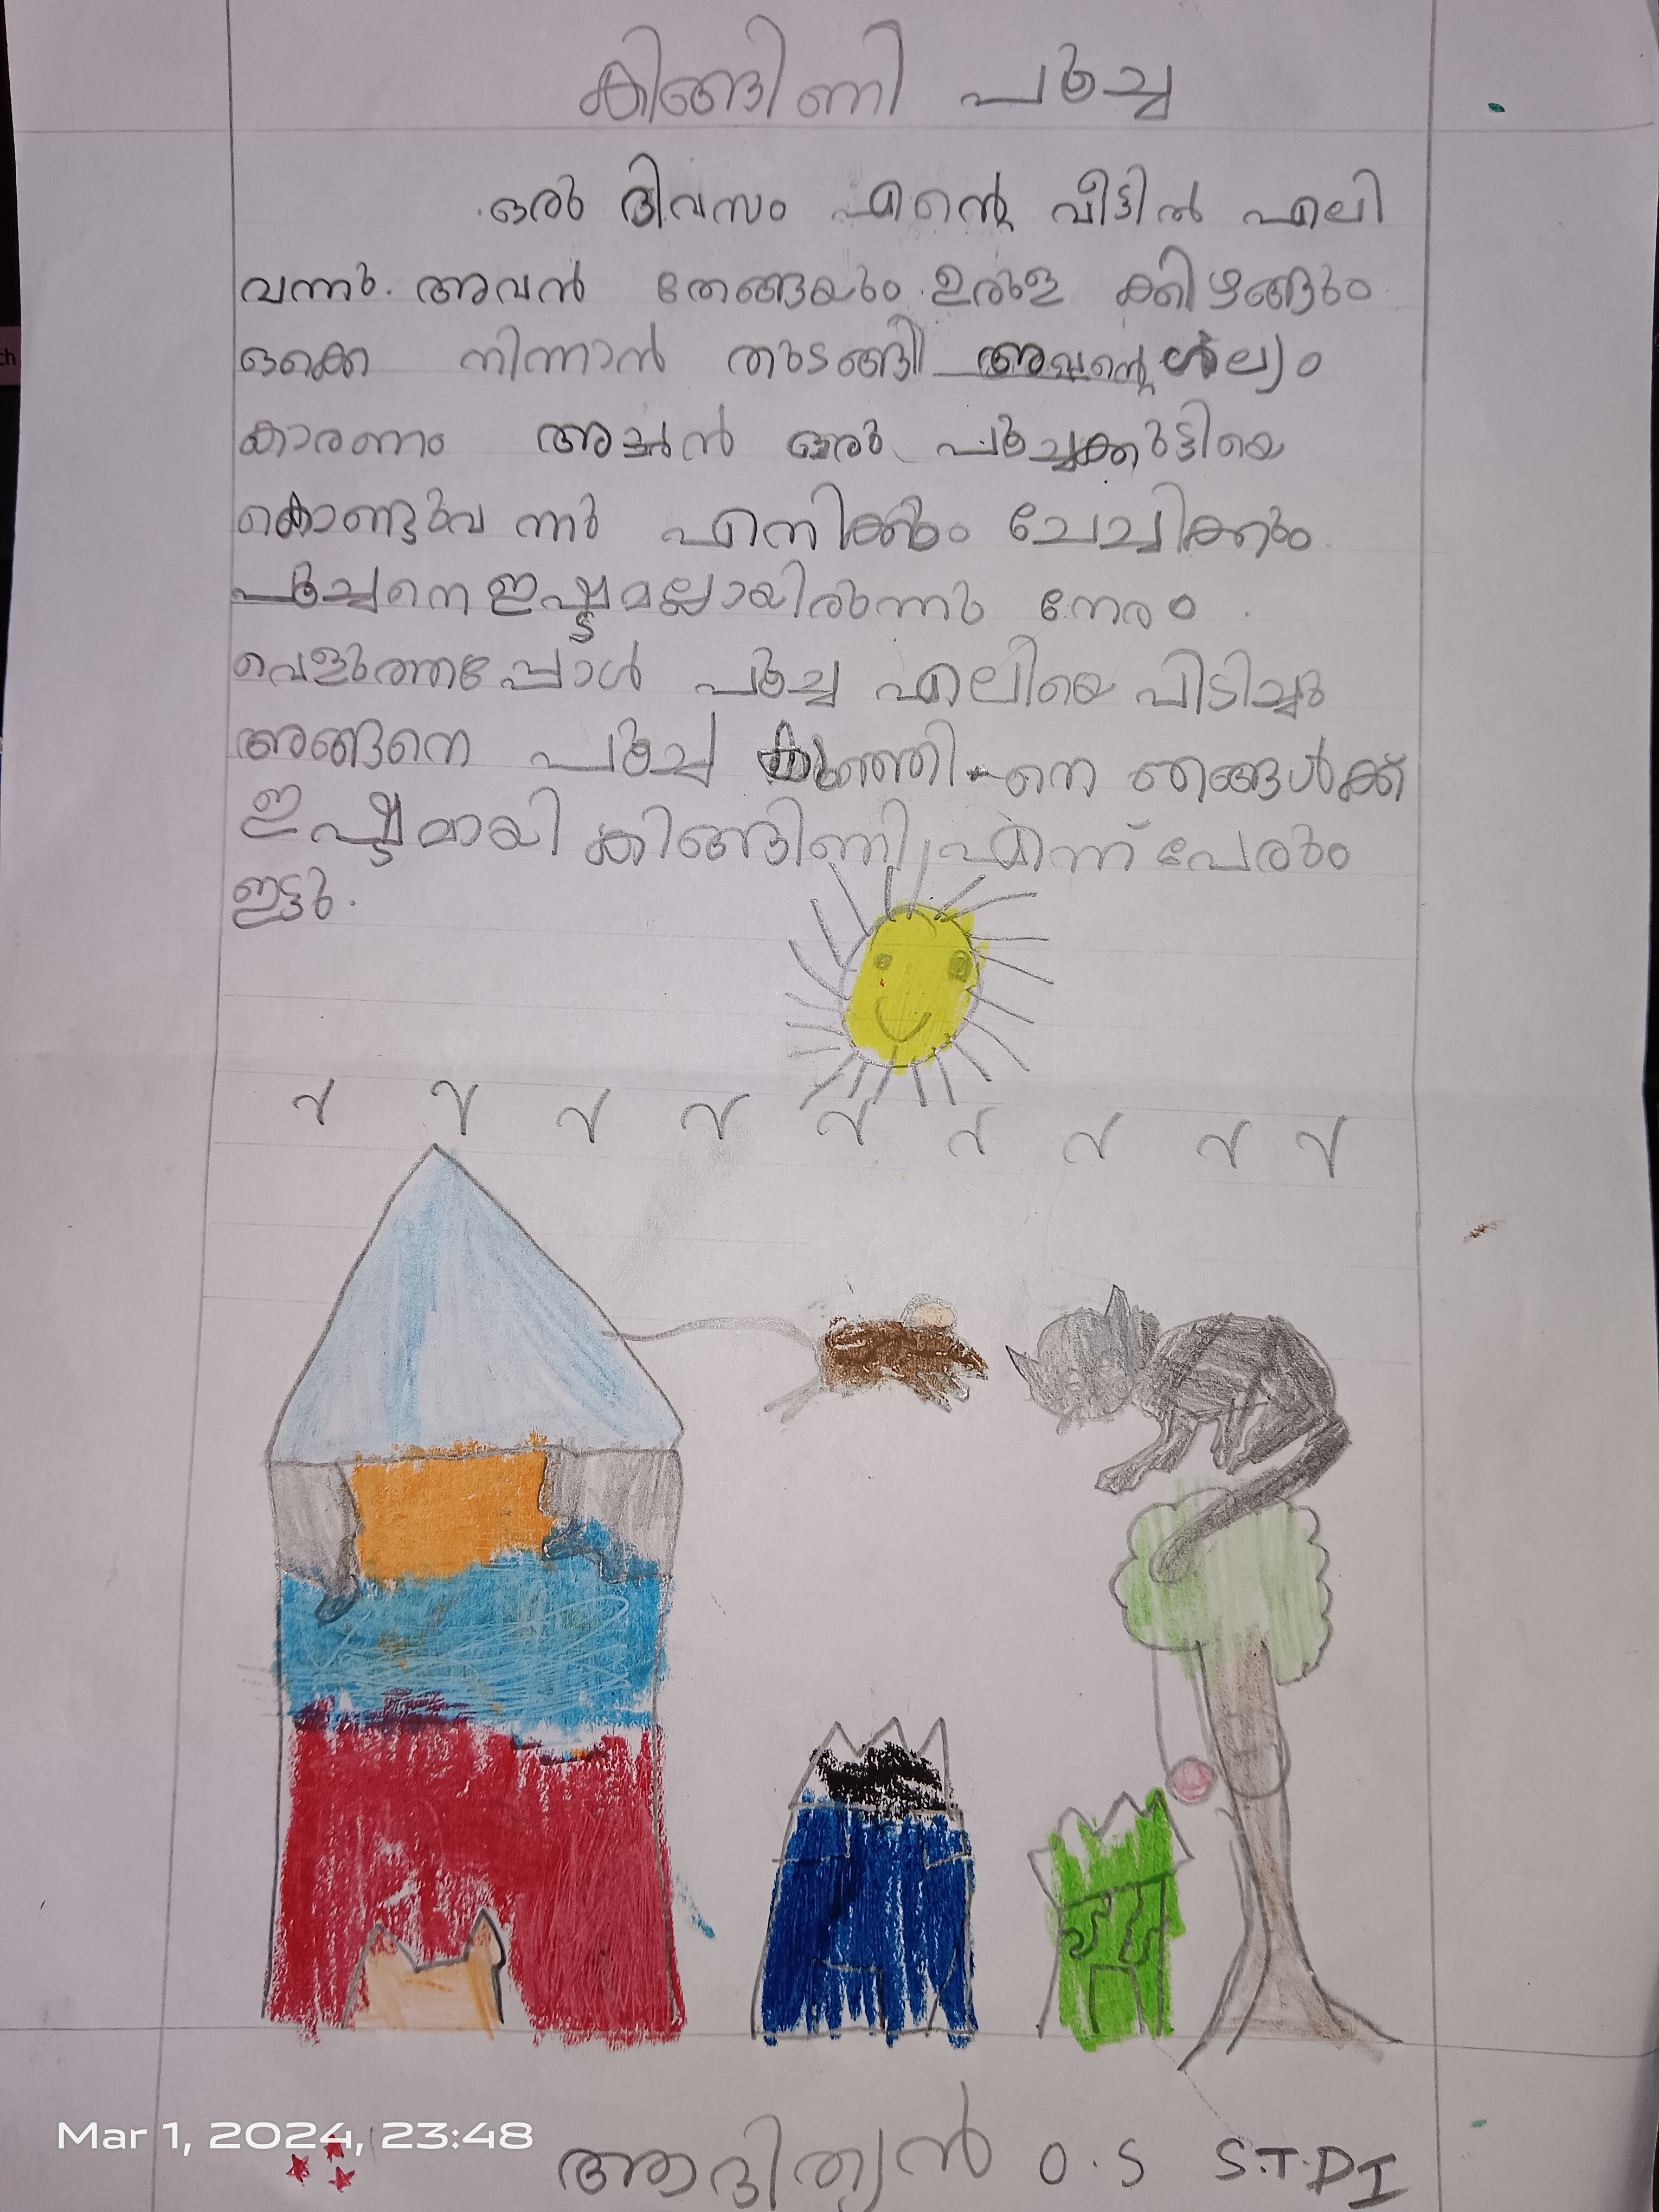 കിങ്ങിണി പൂച്ച
ഒരു ദിവസം എന്റെ വീട്ടിൽ എലി
വന്നു. അവൻ തേങ്ങയും ഉരുള ക്കിഴങ്ങും
ഒക്കെ നിന്നാൻ തുടങ്ങി അവന്റെ ശല്യം
കാരണം അച്ചൻ ഒരു പൂച്ചക്കുട്ടിയെ
കൊണ്ടുവ ന്നു എനിക്കും ചേച്ചിക്കും
പൂച്ചനെ ഇഷ്ട്ടമല്ലായിരുന്നു നേരം
വെളുത്തപ്പോൾ പൂച്ച എലിയെ പിടിച്ചു
അങ്ങനെ പൂച്ച കുഞ്ഞി നെ ഞങ്ങൾക്ക്
ഇഷ്ട്ടമായി കിങ്ങിണി എന്ന് പേരും
ഇട്ടു.
Mar 1, 2024, 23:48
ആദിത്യൻ O.S S.T.D I